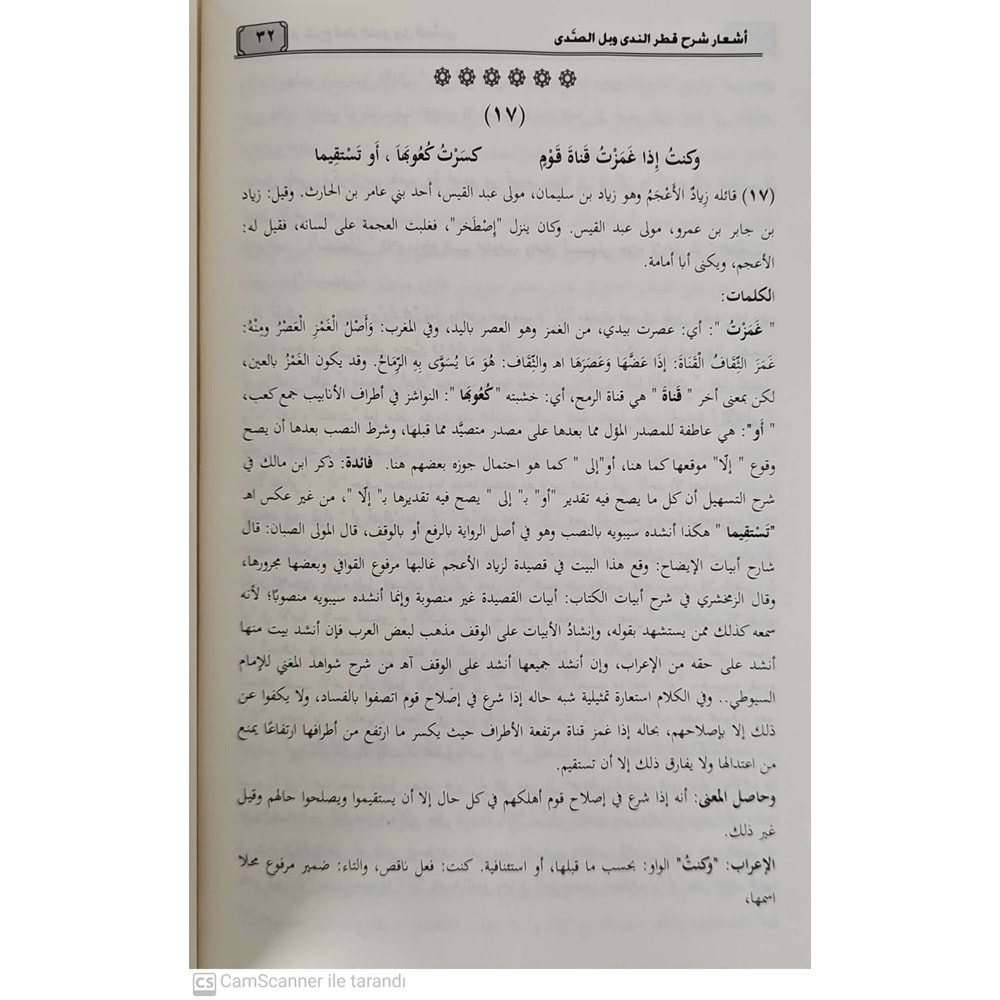 أشعار شرح قطر الندى وبل الصَّدى
٣٢
(١٧)
وكنتُ إِذا غَمَزْتُ قناةَ قَوْمٍ كسَرْتُ كُعُوبَهَا ، أَو تَسْتقِيما
(١٧) قائله زِيادٌ الأَعْجَمُ وهو زياد بن سليمان، مولى عبد القيس، أحد بني عامر بن الحارث. وقيل: زياد
بن جابر بن عمرو، مولى عبد القيس. وكان ينزل "إِصْطَخر"، فغلبت العجمة على لسانه، فقيل له:
الأعجم، ويكنى أبا أمامة.
الكلمات:
" غَمَزْتُ ": أي: عصرت بيدي، من الغمز وهو العصر باليد، وفي المغرب: وَأَصْلُ الْغَمْزِ الْعَصْرُ ومِنْهُ:
غَمَزَ الثِّقَافُ الْقَنَاةَ: إذَا عَضَّهَا وَعَصَرَهَا اهـ والثِّقَاف: هُوَ مَا يُسَوَّى بِهِ الرِّمَاحُ. وقد يكون الغَمْزُ بالعين،
لكن بمعنى أخر " قَناةَ " هي قناة الرمح، أي: خشبته " كُعُوبَها ": النواشز في أطراف الأنابيب جمع كعب،
" أَو": هي عاطفة للمصدر المؤل مما بعدها على مصدر متصيَّد مما قبلها، وشرط النصب بعدها أن يصح
وقوع " إلّا" موقعها كما هنا، أو"إلى " كما هو احتمال جوزه بعضهم هنا. فائدة: ذكر ابن مالك في
شرح التسهيل أن كل ما يصح فيه تقدير "أو" بـ" إلى " يصح فيه تقديرها بـ" إلّا "، من غير عكس اهـ
"تَسْتقِيما " هكذا أنشده سيبويه بالنصب وهو في أصل الرواية بالرفع أو بالوقف، قال المولى الصبان: قال
شارح أبيات الإيضاح: وقع هذا البيت في قصيدة لزياد الأعجم غالبها مرفوع القوافي وبعضها مجرورها،
وقال الزمخشري في شرح أبيات الكتاب: أبيات القصيدة غير منصوبة وإنما أنشده سيبويه منصوبًا؛ لأنه
سمعه كذلك ممن يستشهد بقوله، وإنشادُ الأبيات على الوقف مذهب لبعض العرب فإن أنشد بيت منها
أنشد على حقه من الإعراب، وإن أنشد جميعها أنشد على الوقف آهـ من شرح شواهد المغني للإمام
السيوطي.. وفي الكلام استعارة تمثيلية شبه حاله إذا شرع في إصْلاح قوم اتصفوا بالفساد، ولا يكفوا عن
ذلك إلا بإصلاحهم، بحاله إذا غمز قناة مرتفعة الأطراف حيث يكسر ما ارتفع من أطرافها ارتفاعًا يمنع
من اعتدالها ولا يفارق ذلك إلا أن تستقيم.
وحاصل المعنى: أنه إذا شرع في إصلاح قوم أهلكهم في كل حال إلا أن يستقيموا ويصلحوا حالهم وقيل
غير ذلك.
الإعراب: "وكنتُ" الواو: بحسب ما قبلها، أو استئنافية. كنت: فعل ناقص، والتاء: ضمير مرفوع محلا
اسمها،
CS CamScanner ile tarandı